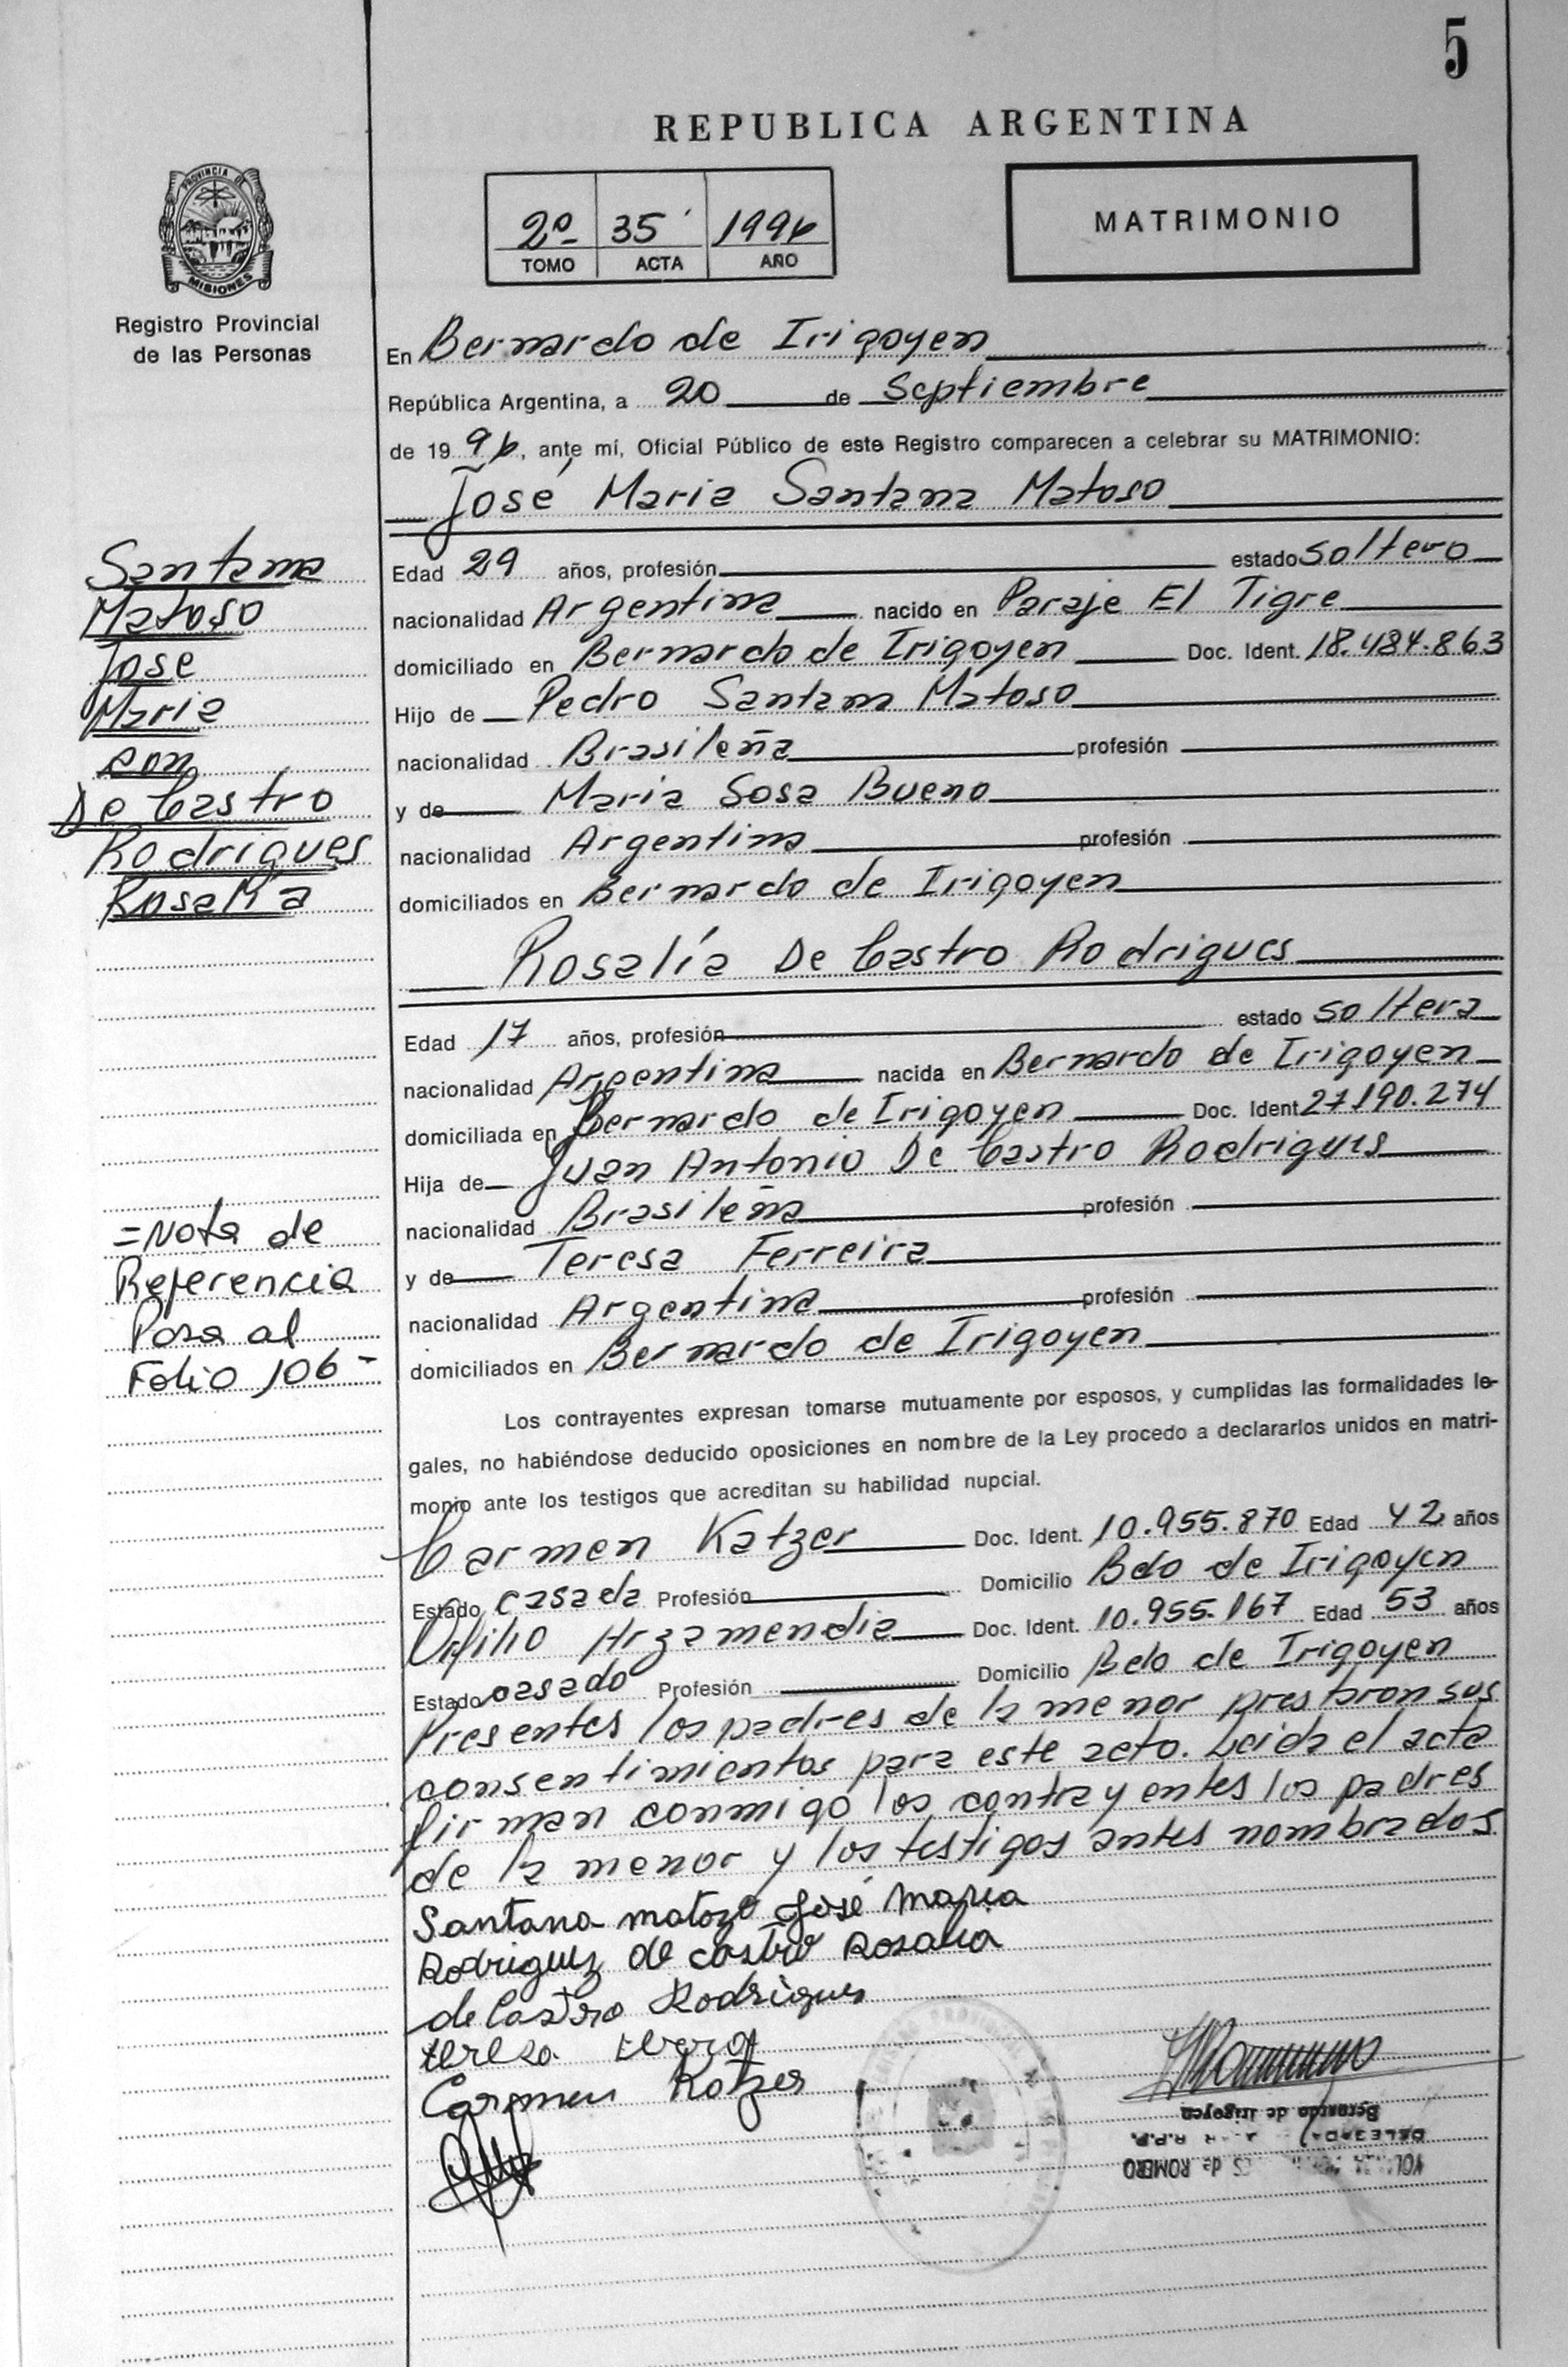 5
REPUBLICA ARGENTINA
PROVINCIA DE
MISIONES
Registro Provincial
de las Personas
2º- 35 1996
TOMO ACTA AÑO
MATRIMONIO
En Bernardo de Irigoyen
República Argentina, a 20 de Septiembre
de 19 96, ante mí, Oficial Público de este Registro comparecen a celebrar su MATRIMONIO:
José Maria Santana Matoso
Santana
Matoso
Jose
Maria
con
De Castro
Rodrigues
Rosalía
Edad 29 años, profesión estado soltero
nacionalidad Argentina nacido en Paraje El Tigre
domiciliado en Bernardo de Irigoyen Doc. Ident. 18.484.863
Hijo de Pedro Santana Matoso
nacionalidad Brasileña profesión
y de Maria Sosa Bueno
nacionalidad Argentina profesión
domiciliados en Bernardo de Irigoyen
Rosalía De Castro Rodrigues
Edad 17 años, profesión estado soltera
nacionalidad Argentina nacida en Bernardo de Irigoyen
domiciliada en Bernardo de Irigoyen Doc. Ident 27.190.274
Hija de Juan Antonio De Castro Rodrigues
nacionalidad Brasileña profesión
y de Teresa Ferreira
nacionalidad Argentina profesión
domiciliados en Bernardo de Irigoyen
=Nota de
Referencia
Pasa al
Folio 106-
Los contrayentes expresan tomarse mutuamente por esposos, y cumplidas las formalidades le-
gales, no habiéndose deducido oposiciones en nombre de la Ley procedo a declararlos unidos en matri-
monio ante los testigos que acreditan su habilidad nupcial.
Carmen Katzer Doc. Ident. 10.955.870 Edad 42 años
Estado casada Profesión Domicilio Bdo de Irigoyen
Arzamendia Doc. Ident. 10.955.167 Edad 53 años
Estado casado Profesión Domicilio Bdo de Irigoyen
Presentes los padres de la menor prestaron sus
consentimientos para este acto. Leida el acta
firman conmigo los contrayentes los padres
de la menor y los testigos antes nombrados
Santana matozo José maria
Rodriguez de castro Rosalia
de Castro Rodrigues
tereza
Carmen Katzer
Bernardo de Irigoyen
R.P.P.
de ROMERO